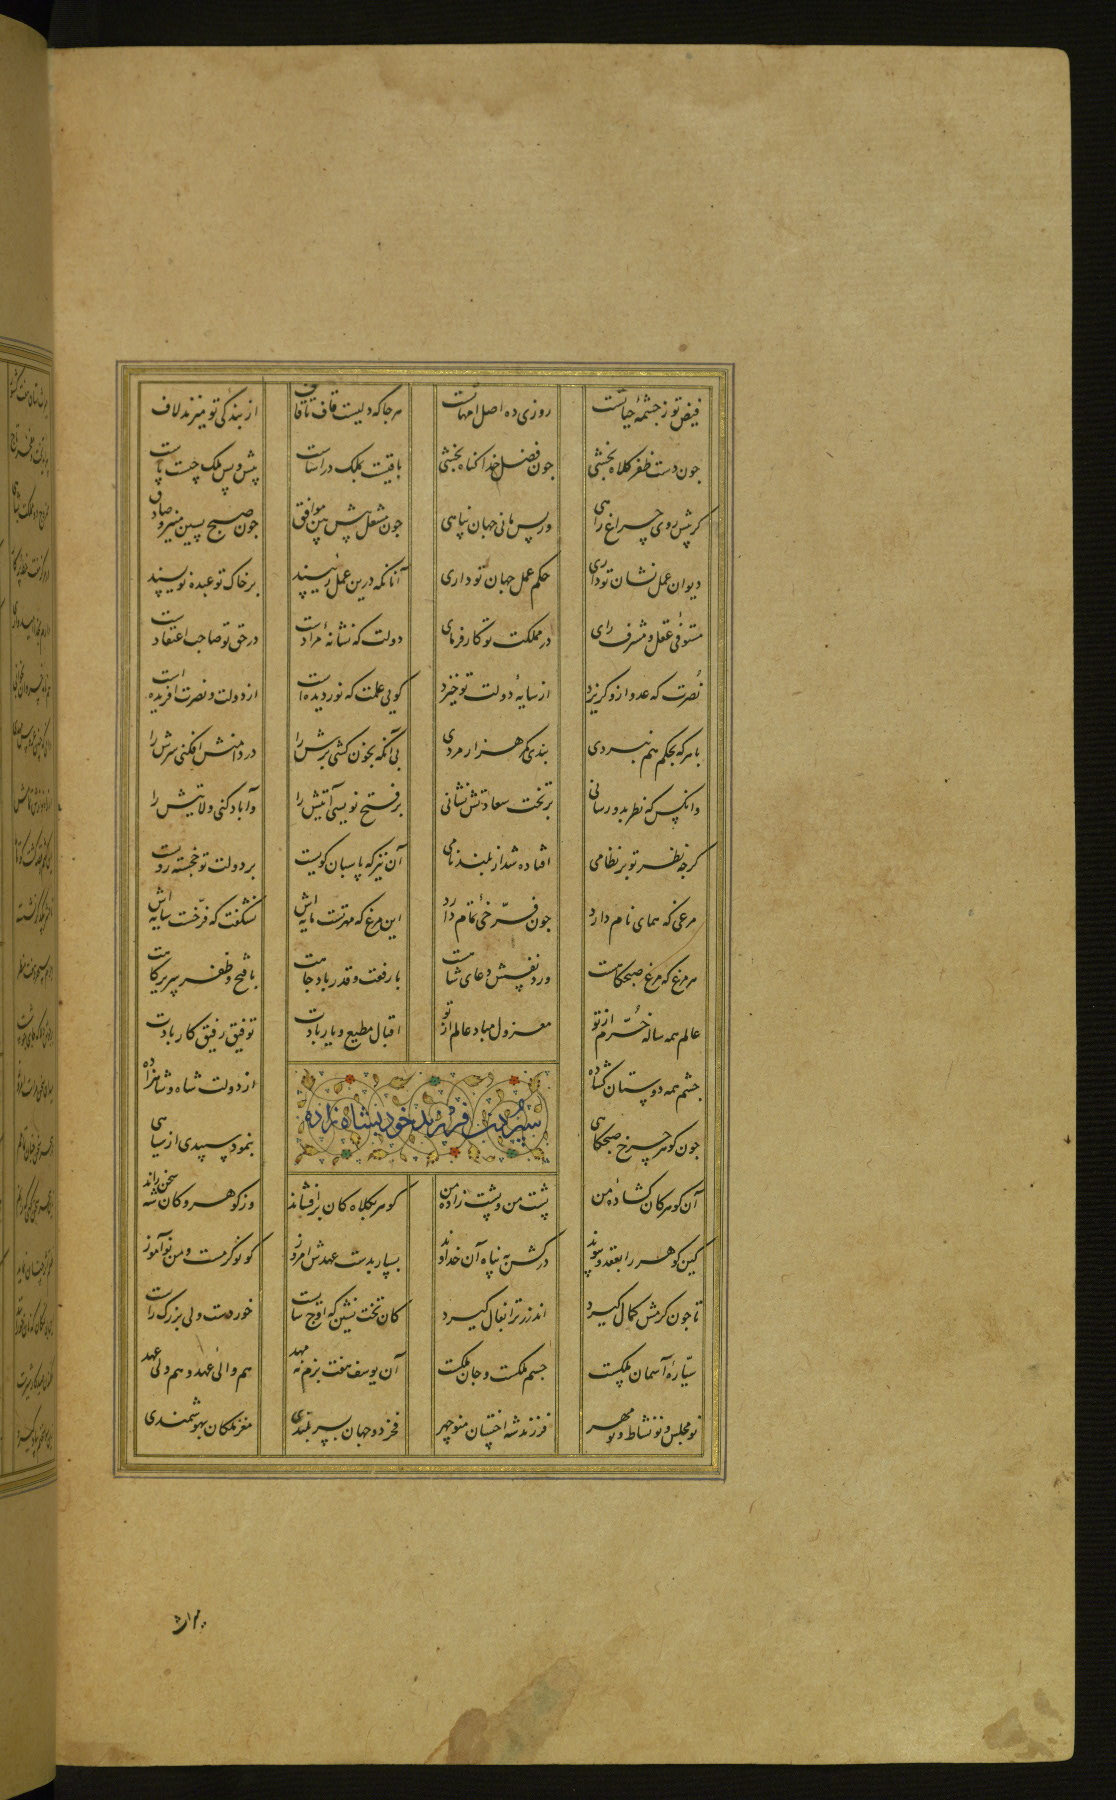 فیض تو ز چشمهٔ حیاتست روزی ده اصل امهاتست هر جا که دلیست قاف تا قاف از بندگی تو میزند لاف
چون دست ظفر کلاه بخشی چون فضل خدا گناه بخشی باقیت بملک در است پیش و پس ملک چست پاست
گر پیش روی چراغ راهی ور پس مانی جهان پناهی چون مشعل پیش بین موافق چون صبح پسین منیر و صادق
دیوان عمل نشان تو داری حکم عمل جهان تو داری آنانکه درین عمل رئیسند بر خاک تو عبده نویسند
مستوفی عقل و مشرف رای در مملکت تو کارفرمای دولت که نشانهٔ مرادست در حق تو صاحب اعتقادست
نصرت که عدو ازو گریزد از سایهٔ دولت تو خیزد گویی علمت که نور دیده است از دولت و نصرت آفریده است
با هر که بحکم هم نبردی بندی کمر هزار مردی بی آنکه بخون کشی برش را در دامنش افکنی سرش را
وانکس که نظر بدو رسانی بر تخت سعادتش نشانی بر فتح نویسی آیتش را وآباد کنی ولایتش را
گرچه نظر تو بر نظامی افتاده شد از بلند نامی آن نیز که پاسبان کویست بر دولت تو خجسته رویست
مرغی که همای نام دارد چون فرخی تمام دارد این مرغ که مهر تست مایه اش نشگفت که فرخست سایه اش
هر مرغ که مرغ صبحگاهست ورد نفسش دعای شاهست با رفعت و قدر باد جاهت با فتح و ظفر سریر گاهت
عالم همه ساله خرم از تو معزول مباد عالم از تو اقبال مطیع و یار بادت توفیق رفیق کار بادت
چشم همه دوستان گشاده از دولت شاه و شاهزاده
سپردن فرزند خود بشاه زاده
چون گوهر چرخ صبحگاهی بنمود سپیدی از سیاهی
آن گوهر کان گشاده من پشت من و پشت زاده من گوهر بکلاه کان برافشاند وز گوهر و کان شه سخن راند
کین گوهر را بعقد و پیوند در کش به پناه آن خداوند بسپار بدست عهدش امروز کو نو کرمست و من نوآموز
تا چون کرمش کمال گیرد اندرز ترا بفال گیرد کان تخت نشین که اوج سایست خردست ولی بزرگ رایست
سیارهٔ آسمان ملکست جسم ملکست و جان ملکست آن یوسف هفت بزم نه مهد هم والی عهد و هم ولی عهد
نو مجلس و نو نشاط و نو مهر فرزند شه اخستان منوچهر فخر دو جهان بسر بلندی مغز ملکان بهوشمندی